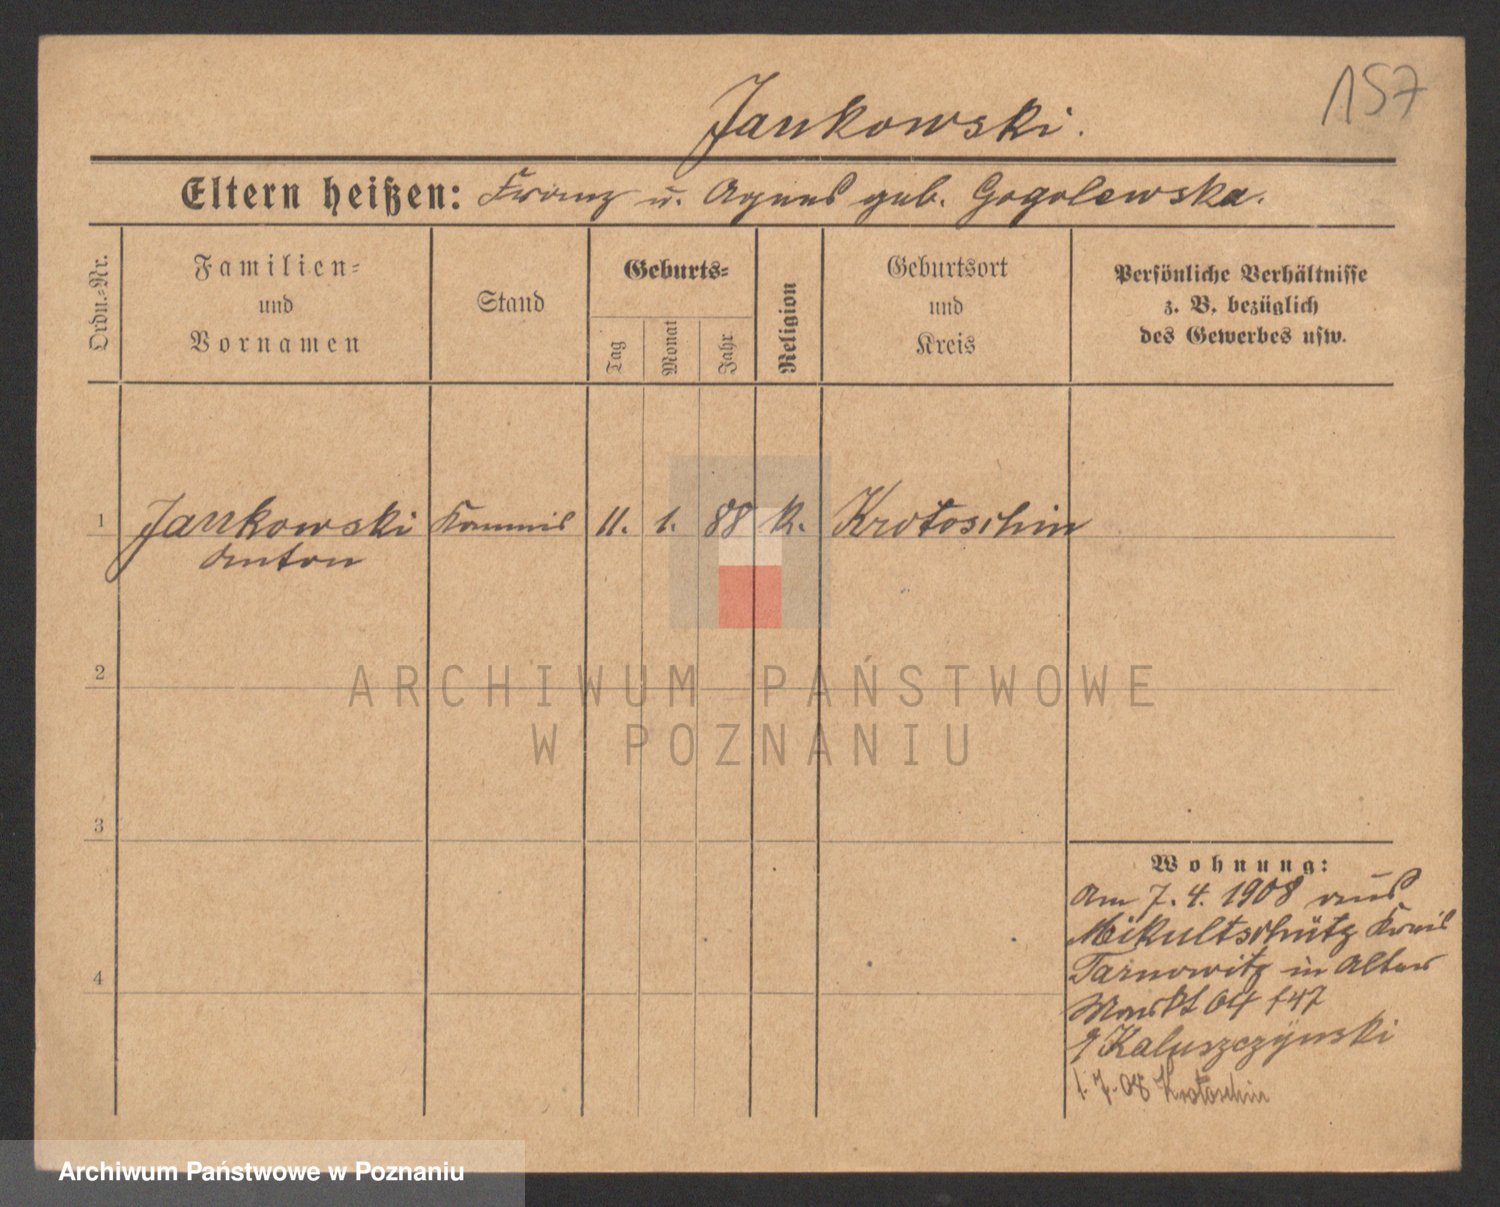 157
Jankowski.
Eltern heißen: Franz u. Agnes geb. Gogolewska.
Ordn.-Nr.
Familien-
und
Vornamen
Stand
Geburts-
Tag
Monat
Jahr
Religion
Geburtsort
und
Kreis
Persönliche Verhältnisse
z. B. bezüglich
des Gewerbes usw.
1 Jankowski Kommis 11. 1. 88 k. Krotoschin
Anton
2
ARCHIWUM PAŃSTWOWE
W POZNANIU
3
Wohnung:
Am 7.4.1908 aus
Mikultschütz Kreis
Tarnowitz in Alter
4
Markt 64
Kaluszczÿnski
1.7.08 Krotoschin
Archiwum Państwowe w Poznaniu